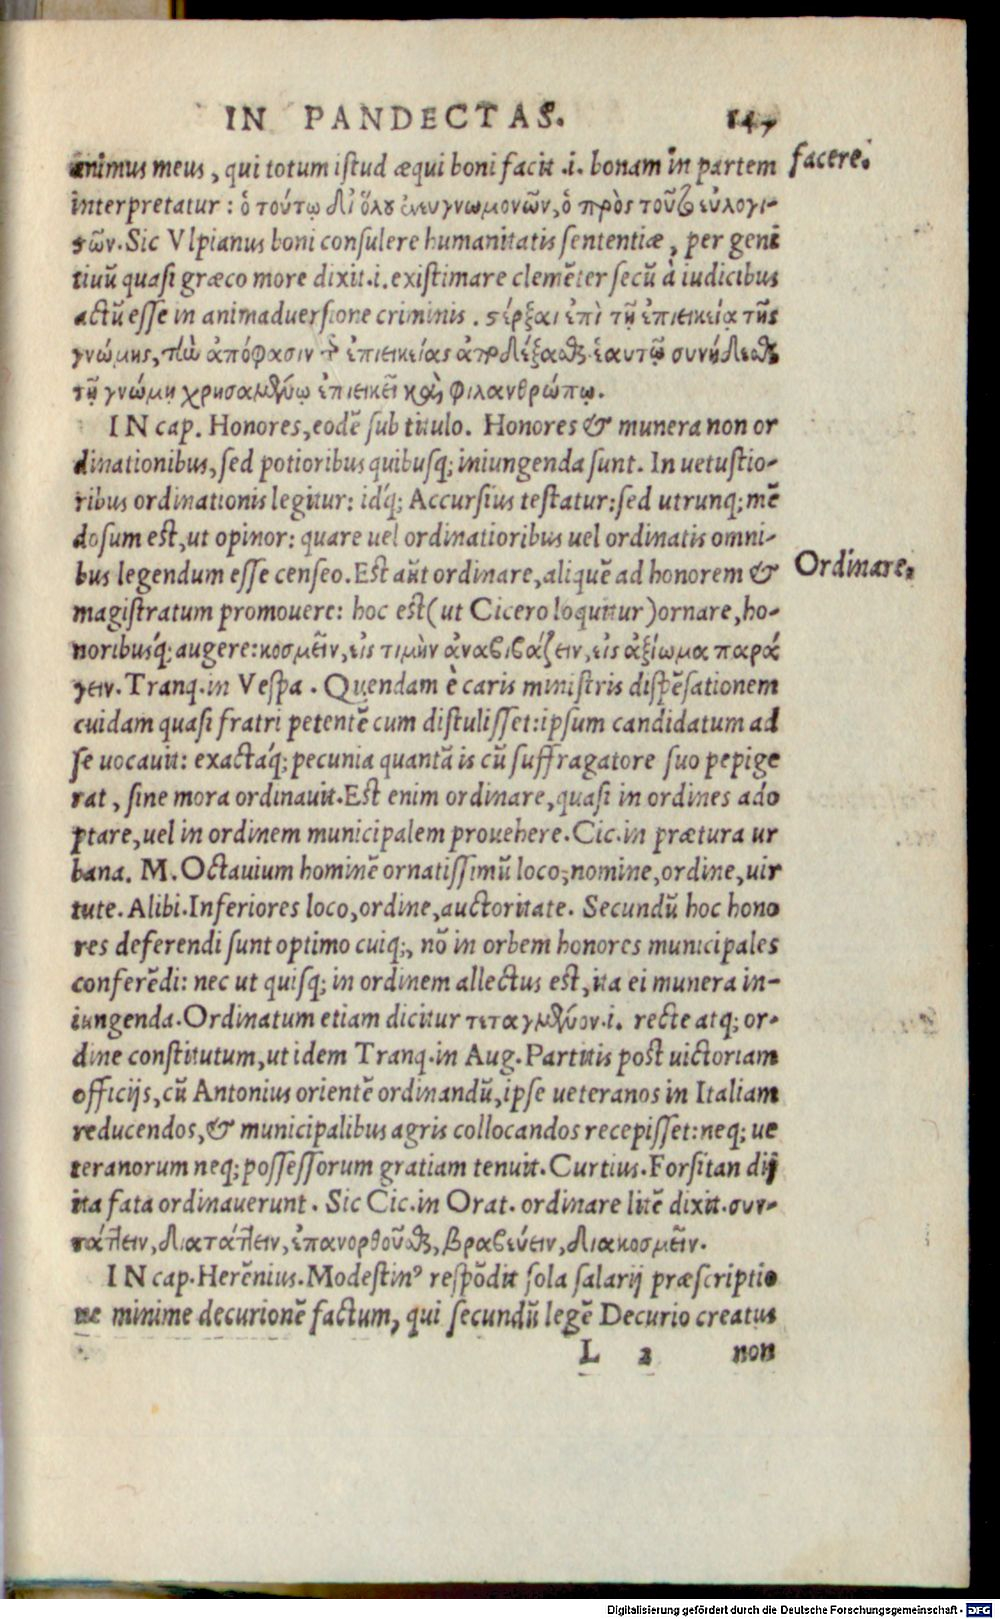 IN PANDECTAS. 147
animus meus, qui totum istud æqui boni facit .i. bonam in partem
facere.
interpretatur: ὁ τούτῳ δι' ὅλου εὐγνωμονῶν, ὁ πρὸς τοῦτ εὐλογι-
στῶν. Sic Vlpianus boni consulere humanitatis sententiæ, per geni
tiuũ quasi græco more dixit .i. existimare clemẽter secũ à iudicibus
actũ esse in animaduersione criminis. στέρξαι ἐπὶ τῇ ἐπιεικείᾳ τῆς
γνώμης, τὴν ἀπόφασιν τῆς ἐπιεικείας ἀποδέξασθαι ἑαυτῷ συνήδεσθαι
τῇ γνώμῃ χρησαμένῳ ἐπιεικεῖ καὶ φιλανθρώπῳ.
IN cap. Honores, eodẽ sub titulo. Honores & munera non or
dinationibus, sed potioribus quibusq; iniungenda sunt. In uetustio-
ribus ordinationis legitur: idq́; Accursius testatur: sed utrunq; mẽ
dosum est, ut opinor: quare uel ordinatioribus uel ordinatis omni-
bus legendum esse censeo. Est aũt ordinare, aliquẽ ad honorem &
Ordinare.
magistratum promouere: hoc est (ut Cicero loquitur) ornare, ho-
noribusq́; augere: κοσμεῖν, εἰς τιμὴν ἀναβιβάζειν, εἰς ἀξίωμα παρά
γειν. Tranq. in Vespa. Quendam è caris ministris dispẽsationem
cuidam quasi fratri petentẽ cum distulisset: ipsum candidatum ad
se uocauit: exactaq́; pecunia quantã is cũ suffragatore suo pepige
rat, sine mora ordinauit. Est enim ordinare, quasi in ordines ado
ptare, uel in ordinem municipalem prouehere. Cic. in prætura ur
bana. M. Octauium hominẽ ornatissimũ loco, nomine, ordine, uir
tute. Alibi. Inferiores loco, ordine, auctoritate. Secundũ hoc hono
res deferendi sunt optimo cuiq;, nõ in orbem honores municipales
conferẽdi: nec ut quisq; in ordinem allectus est, ita ei munera in-
iungenda. Ordinatum etiam dicitur τεταγμένον .i. recte atq; or-
dine constitutum, ut idem Tranq. in Aug. Partitis post uictoriam
officijs, cũ Antonius orientẽ ordinandũ, ipse ueteranos in Italiam
reducendos, & municipalibus agris collocandos recepisset: neq; ue
teranorum neq; possessorum gratiam tenuit. Curtius. Forsitan dij
ita fata ordinauerunt. Sic Cic. in Orat. ordinare litẽ dixit. συν-
τάττειν, διατάττειν, ἐπανορθοῦσθαι, βραβεύειν, διακοσμεῖν.
IN cap. Herẽnius. Modestinꝰ respõdit sola salarij præscriptio
ne minime decurionẽ factum, qui secundũ legẽ Decurio creatus
L 2 non
Digitalisierung gefördert durch die Deutsche Forschungsgemeinschaft - DFG